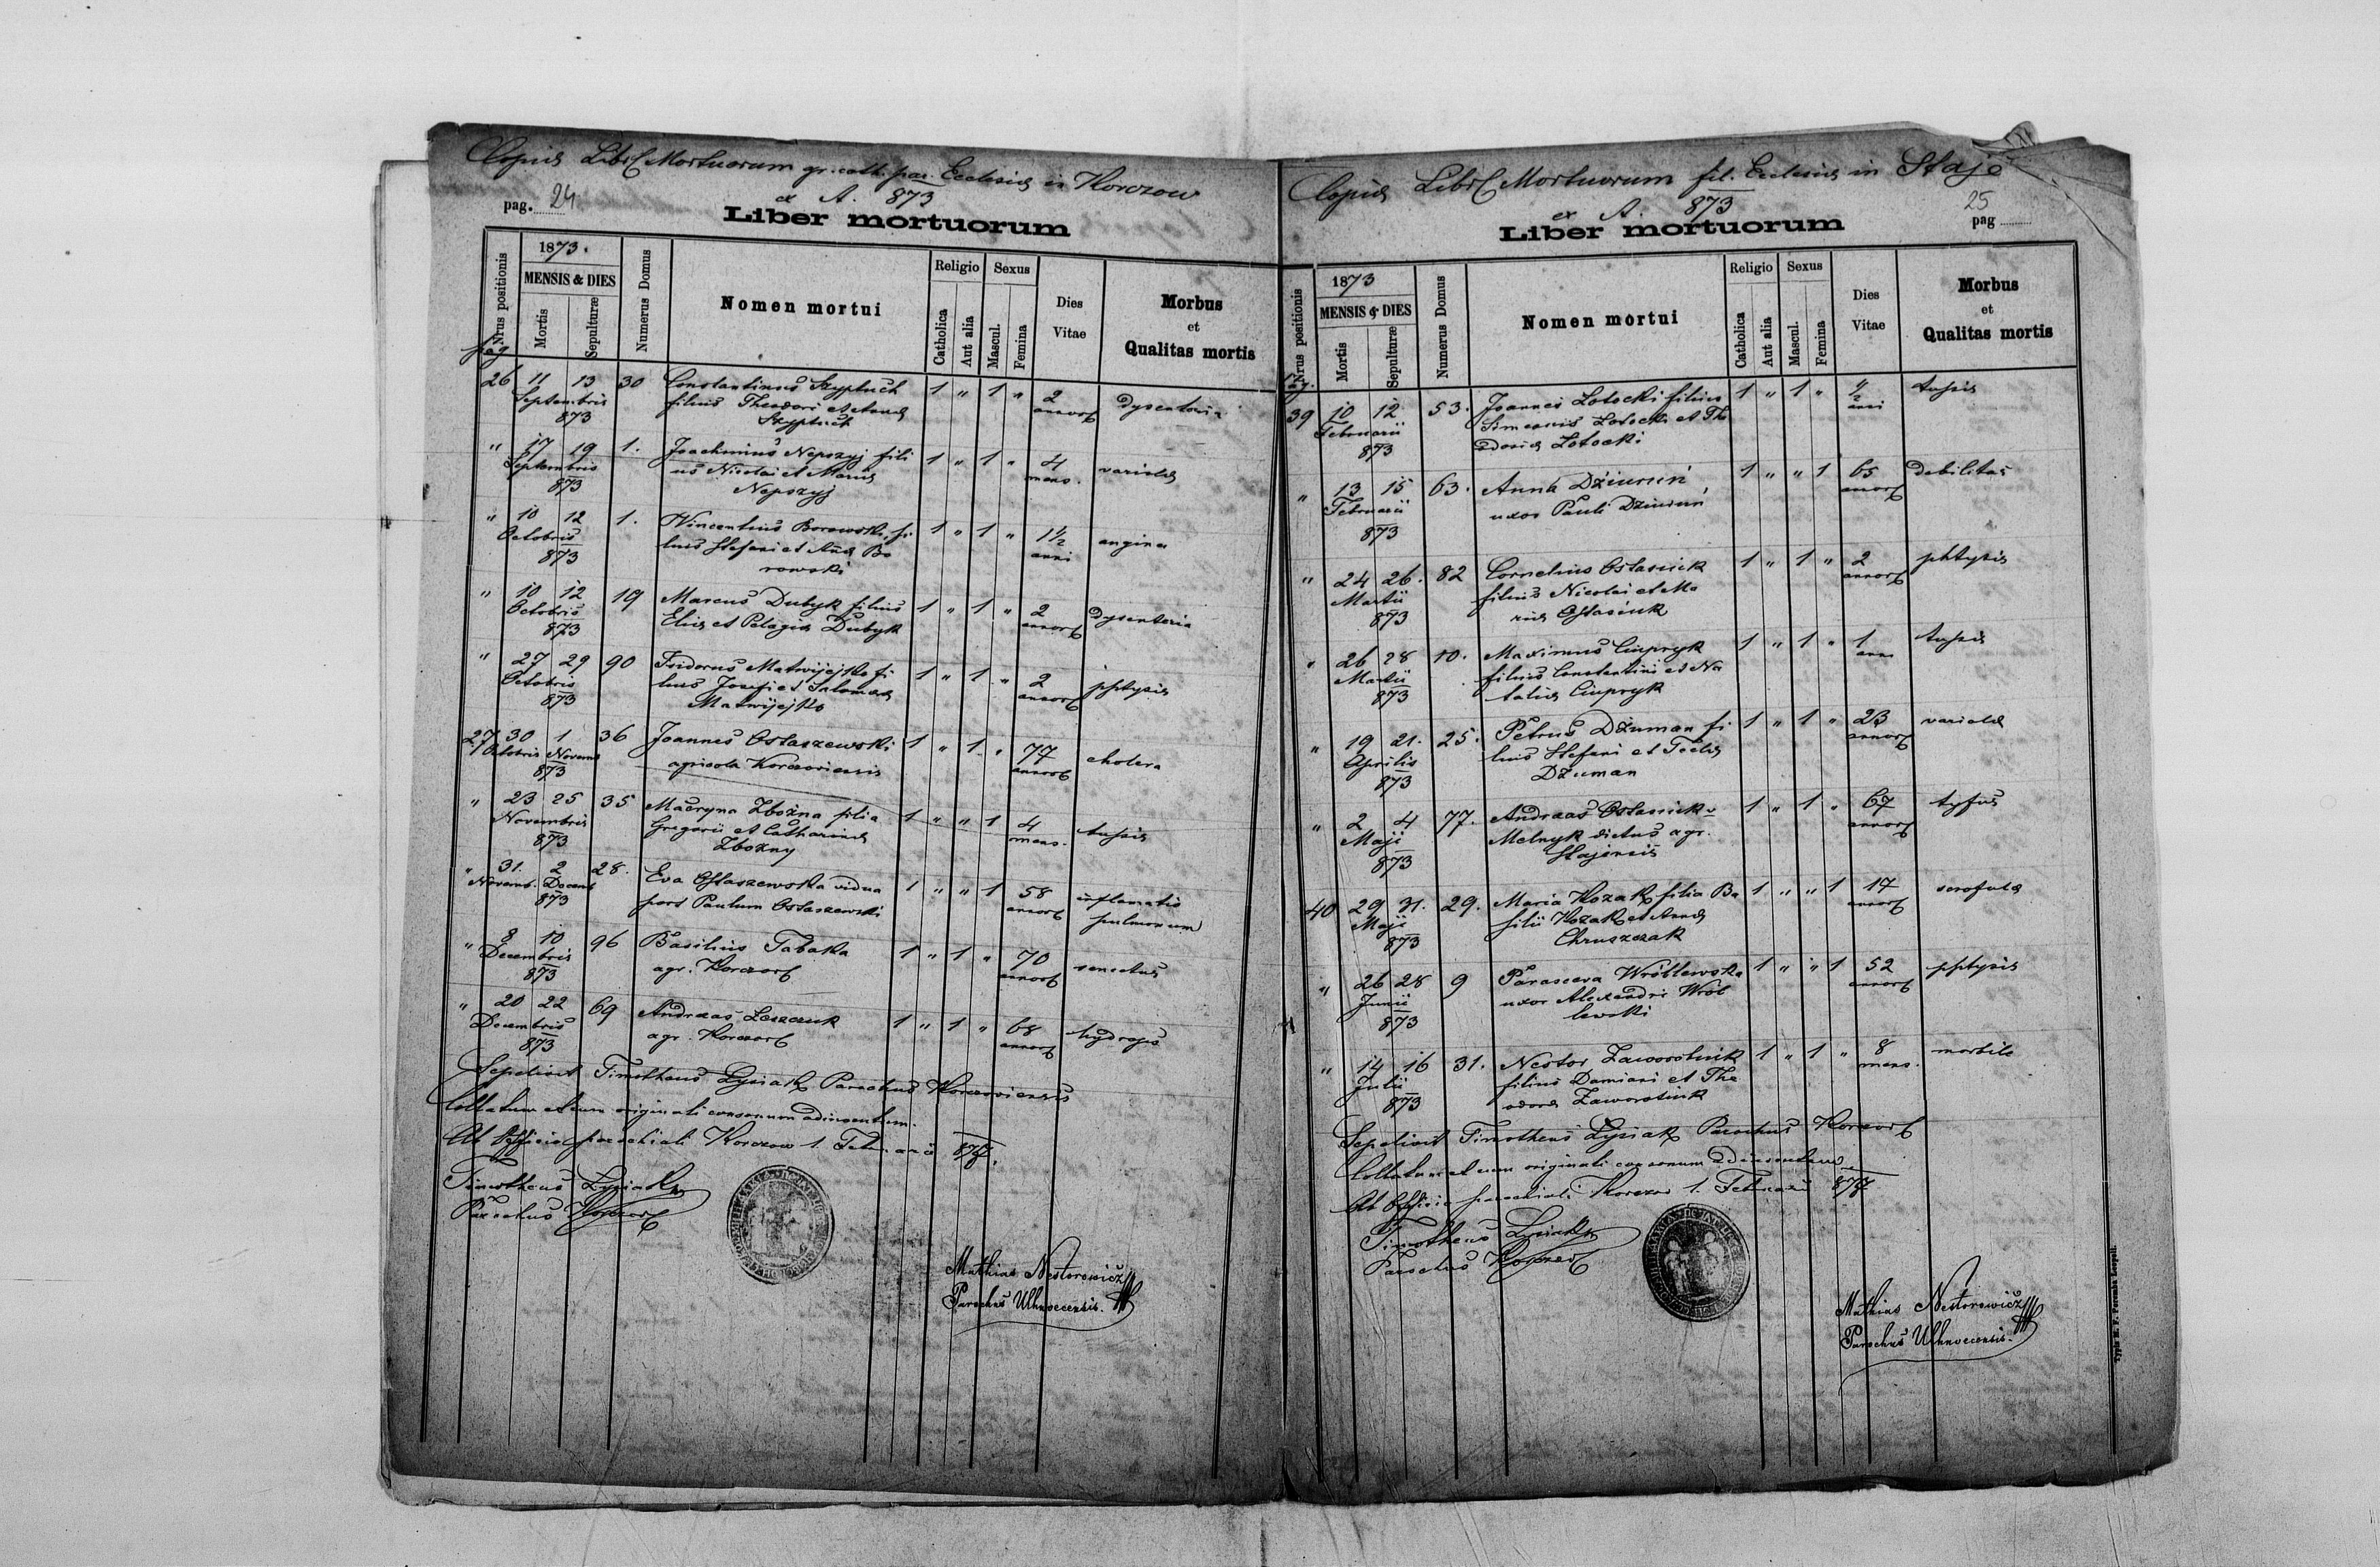 Copia Libri Mortuorum gr. cath. par. Ecclesiae in Korczow
ex A. 873
pag. 24
Liber mortuorum
Nrus positionis
1873.
MENSIS & DIES
Mortis
Sepulturæ
Numerus Domus
Nomen mortui
Religio
Catholica
Aut alia
Sexus
Mascul.
Femina
Dies
Vitae
Morbus
et
Qualitas mortis
pag
26 11 13 30 Constantinus Szyptuch 1 " 1 " 2 dysenteria
Septembris filius Theodori et Annae annor
873 Szyptuch
" 17 19 1. Joachimus Nepszyj fili 1 " 1 " 4 variola
Septembris us Nicolai et Mariae mens.
873 Nepszyj
" 10 12 1. Wincentius Borowski fi 1 " 1 " 1½ angina
Octobris lius Stefani et Annae Bo anni
873 rowski
" 10 12 19 Marcus Dubyk filius 1 " 1 " 2 dysenteria
Octobris Eliae et Pelagiae Dubyk annor
873
" 27 29 90 Isidorus Matwijejko fi 1 " 1 " 2 phtysis
Octobris lius Josefi et Salomeae annor
873 Matwijejko
27 30 1 36 Joannes Ostaszewski 1 " 1 " 77 cholera
Octobris Novemb agricola Korczoviensis annor
873
" 23 25 35 Macryna Zbożna filia 1 " " 1 4 tussis
Novembris Gregorii et Catharinae mens.
873 Zbożny
" 31. 2 28. Eva Ostaszewska vidua 1 " " 1 58 inflamatio
Novemb. Decemb post Paulum Ostaszewski annor pulmonum
873
" 8 10 96 Basilius Tabaka 1 " 1 " 70 senectus
Decembris agr. Korczov annor
873
" 20 22 69 Andreas Leszczuk 1 " 1 " 68 hydrops
Decembris agr. Korczov annor
873
Sepelivit Timotheus Lysiak Parochus Korczoviensis
Collatum et cum originali consonum adinventum.
Ab Officio parochiali Korczow 1. Februarii 874.
Timotheus Lysiak
Parochus Korczov
Mathias Nestorowicz
Parochus Uhnoecensis.
Copia Libri Mortuorum fil. Ecclesiae in Staje
ex A. 873
25
pag
Liber mortuorum
Nrus positionis
1873
MENSIS & DIES
Mortis
Sepulturæ
Numerus Domus
Nomen mortui
Religio
Catholica
Aut alia
Sexus
Mascul.
Femina
Dies
Vitae
Morbus
et
Qualitas mortis
pag.
39 10 12 53. Joannes Lotocki filius 1 " 1 " ½ tussis
Februarii Simeonis Lotocki et The anni
873 odosia Lotocki
" 13 15 63. Anna Dziurun 1 " " 1 65 debilitas
Februarii uxor Pauli Dziurun annor
873
" 24 26. 82 Cornelius Ostasiuk 1 " 1 " 2 phtysis
Martii filius Nicolai et Ma annor
873 riae Ostasiuk
" 26 28 10. Maximus Ciupryk 1 " 1 " 1 tussis
Martii filius Constantini et Na anni
873 taliae Ciupryk
" 19 21. 25. Petrus Dżuman fi 1 " 1 " 23 variola
Aprilis lius Stefani et Teclae annor
873 Dżuman
" 2 4 77. Andreas Ostasiuk v 1 " 1 " 67 tyfus
Maji Melnyk dictus agr. annor
873 Stajensis
40 29 31. 29. Maria Kozak filia Ba 1 " " 1 17 scrofula
Maji silii Kozak et Annae annor
873 Chruszczak
" 26 28 9 Parasceva Wróblewska 1 " " 1 52 phtysis
Junii uxor Alexandri Wrób annor
873 lewski
" 14 16 31. Nestor Zaworotiuk 1 " 1 " 8 morbili
Julii filius Damiani et The mens.
873 odora Zaworotiuk
Sepelivit Timotheus Lysiak Parochus Korczov
Collatum et cum originali consonum adinventum
Ab Officio parochiali Korczov 1. Februarii 874
Timotheus Lysiak
Parochus Korczov
Mathias Nestorowicz
Parochus Uhnoecensis.
Typis E. F. Poremba Leopoli.